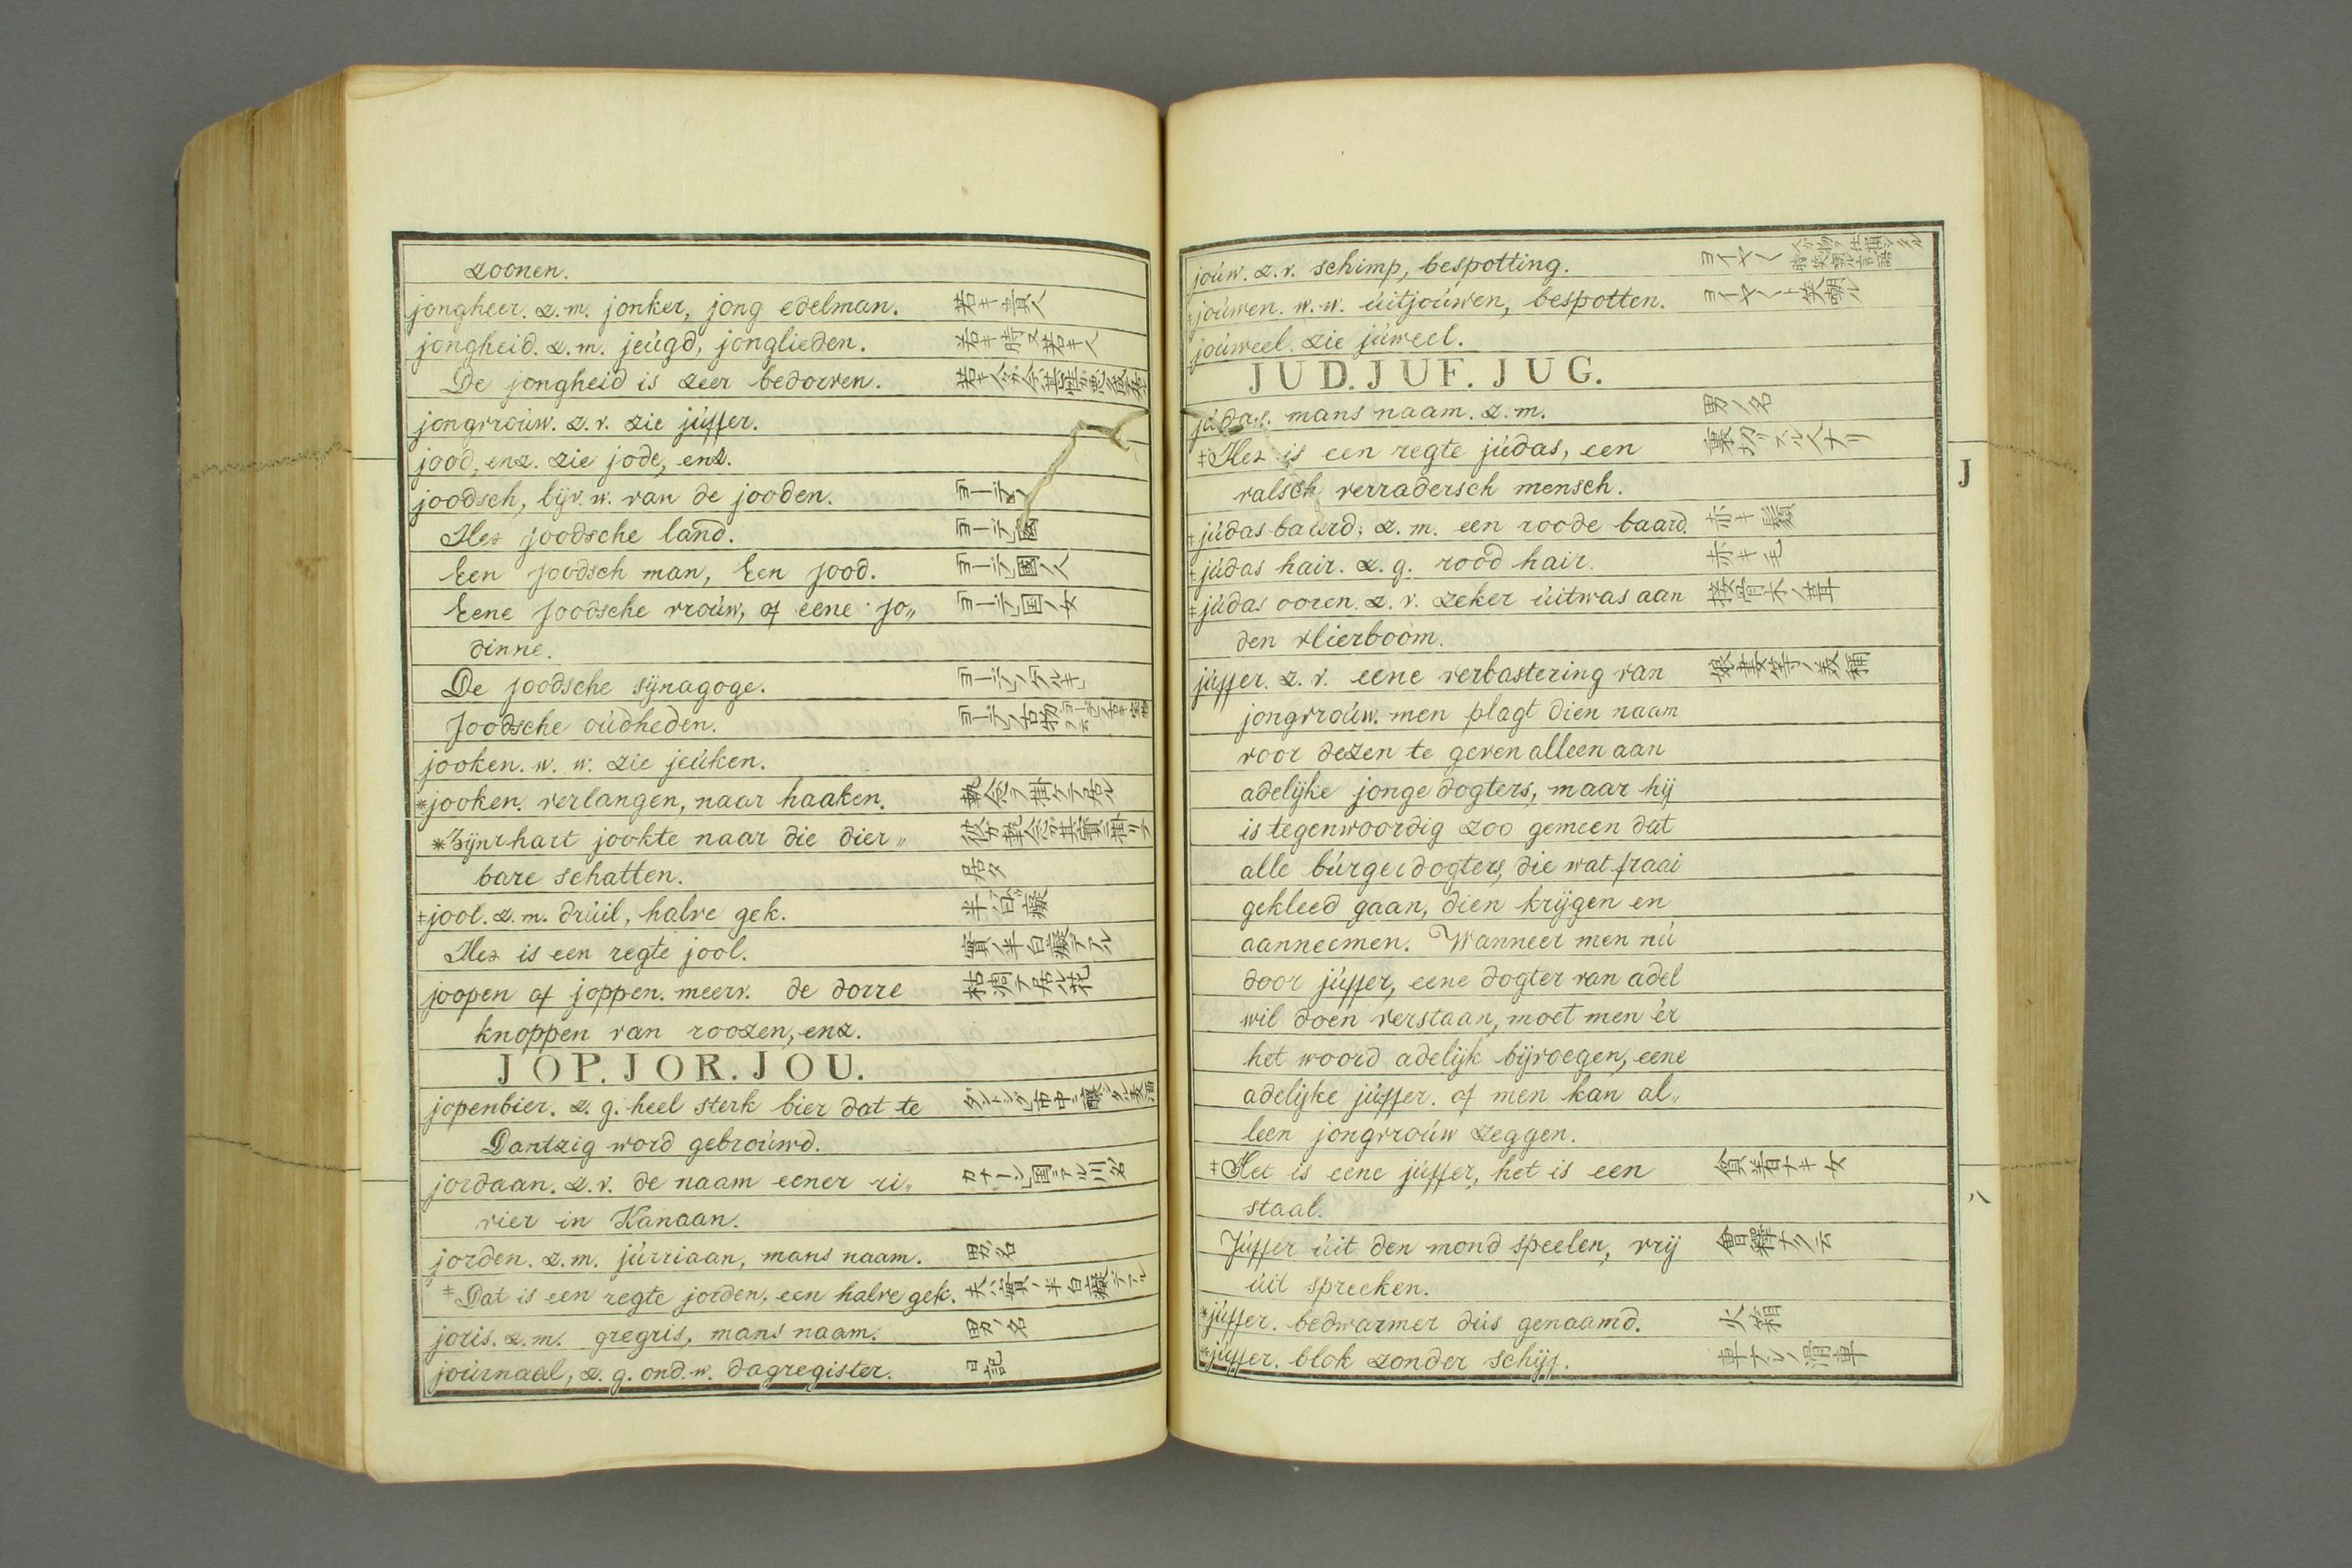 zoonen.
jongheer. z.m. jonker, jong edelman. 若キ貴人
jongheid. z.m. jeúgd, jonglieden. 若キ時又若キ人
De jongheid is zeer bedorven. 若キ人
jongvroúw. z.v. zie júffer.
jood, enz. zie jode, enz.
joodsch, bijv. w. van de jooden. ヨーデンノ
Het joodsche land. ヨーデン國
Een joodsch man, Een jood. ヨーデン國ノ人
Eene joodsche vroúw, of eene jo„ ヨーデン国ノ女
dinne.
De joodsche sijnagoge. ヨーデンノ
Joodsche oúdheden. ヨーデンノ古物
jooken. w. w. zie jeúken.
*jooken. verlangen, naar haaken. 執念ヲ掛ケテ居ル
*Zijn hart jookte naar die dier„ 彼ガ執念ガ其寳ニ掛ツテ
bare schatten. 居タ
‡jool. z.m. drúil, halve gek. 半白癡
Het is een regte jool. 實ノ半白癡デアル
joopen of joppen. meerv. de dorre 枯凋テ居ル花
knoppen van roozen, enz.
JOP. JOR. JOU.
jopenbier. z.g. heel sterk bier dat te
Dantzig word gebroúwd.
jordaan. z.v. de naam eener ri„ カナーン国ニアル川ノ名
vier in Kanaan.
jorden. z.m. júrriaan, mans naam. 男ノ名
‡Dat is een regte jorden, een halve gek. 夫ハ實ノ半白癡デアル
joris. z.m. gregris, mans naam. 男ノ名
joúrnaal, z.g. ond. w. dagregister. 日記
joúw. z.v. schimp, bespotting.
‡joúwen. w.w. úitjoúwen, bespotten.
joúweel. zie júweel.
JUD. JUF. JUG.
júdas. mans naam. z.m. 男ノ名
‡Het is een regte júdas, een 裏切リスル人ナリ
valsch verradersch mensch.
‡júdas baard; z.m. een roode baard. 赤キ鬚
‡júdas hair. z.g. rood hair. 赤キ毛
‡júdas ooren. z.v. zeker úitwas aan 接骨木ノ茸
den vlierboom.
júffer. z.v. eene verbastering van 娘妻等ノ美稱
jongvroúw. men plagt dien naam
voor dezen te geven alleen aan
adelijke jonge dogters, maar hij
is tegenwoordig zoo gemeen dat
alle búrgerdogters, die wat fraai
gekleed gaan, dien krijgen en
aanneemen. Wanneer men nú
door júffer, eene dogter van adel
wil doen verstaan, moet men 'er
het woord adelijk bijvoegen, eene
adelijke júffer. of men kan al„
leen jongvroúw zeggen.
‡Het is eene júffer, het is een
staal.
Júffer úit den mond speelen, vrij 會釋ナク云
úit spreeken.
*júffer. bedwarmer dús genaamd. 火箱
*júffer. blok zonder schijf. 車ナシノ滑車
J